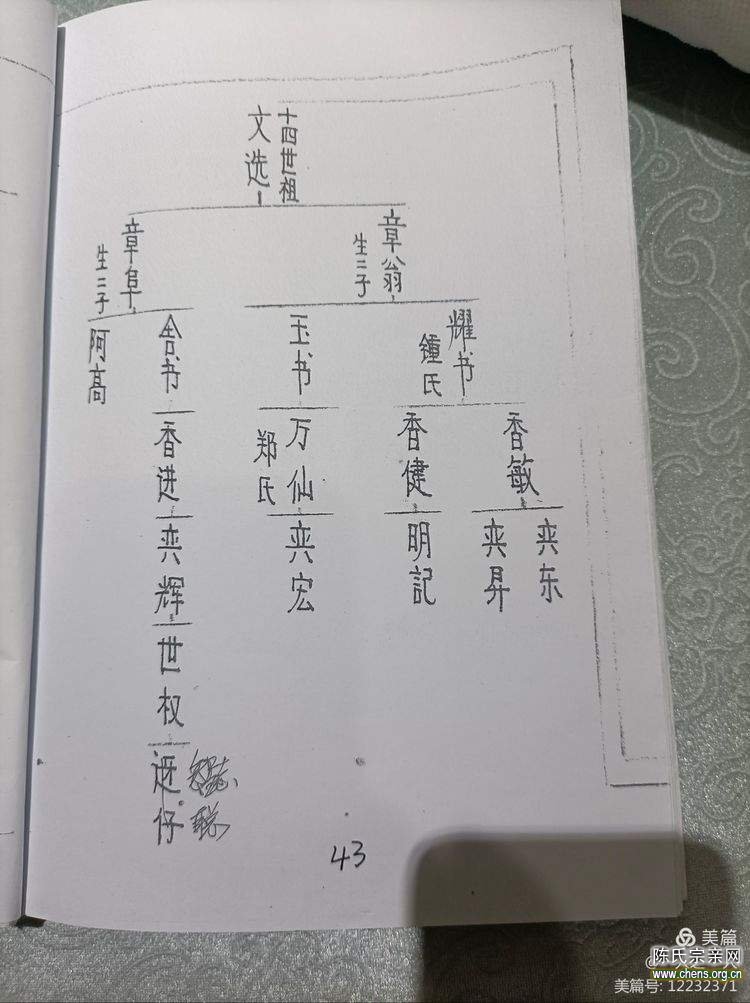 十四世祖
文选
章翁
生二子
章阜
生二子
耀书
鍾氏
玉书
舍书
阿高
香敏
香健
万仙
郑氏
香进
奕东
奕昇
明記
奕宏
奕辉
世权
仔
聪
43
美篇
陈氏宗亲网
www.chens.org.cn
美篇号: 12232371